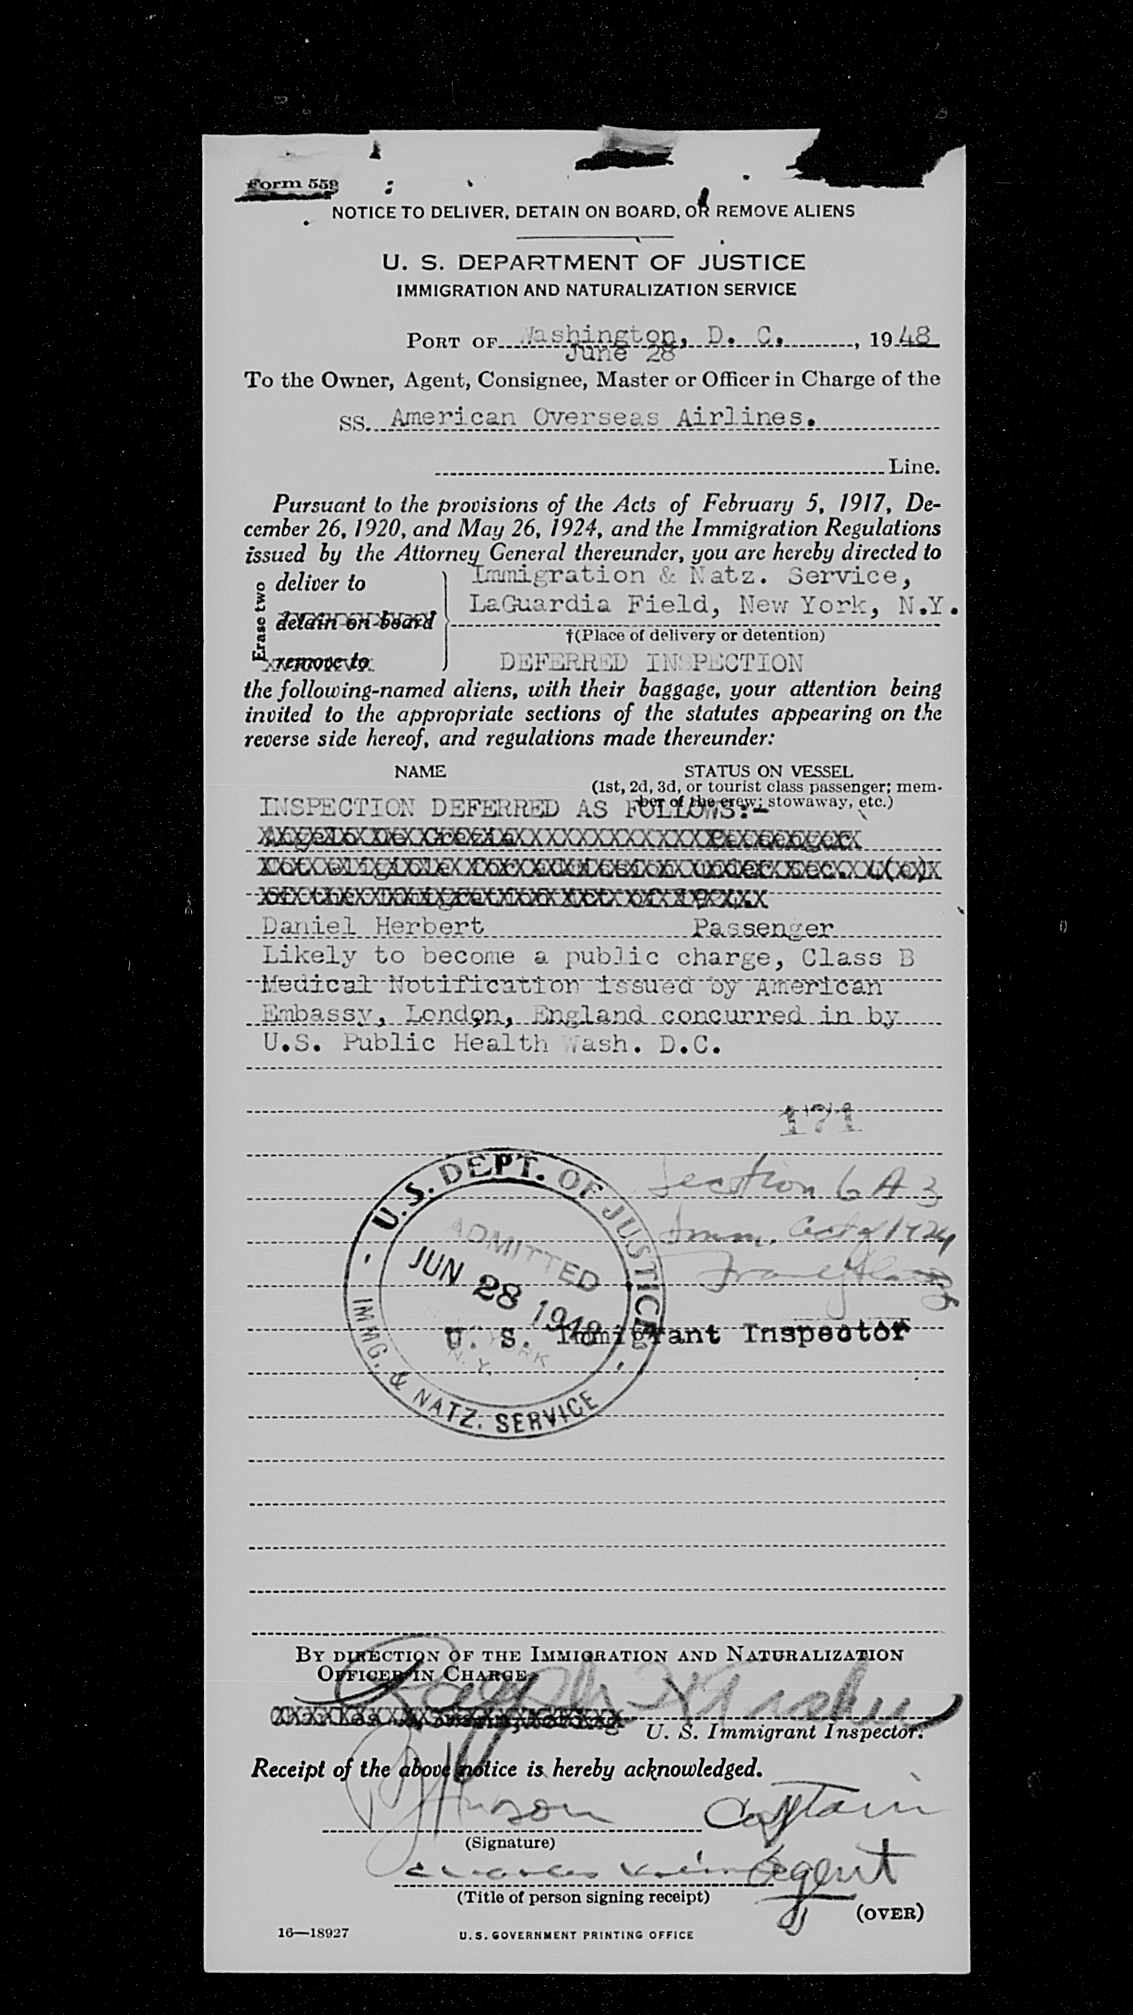 Form 559
NOTICE TO DELIVER, DETAIN ON BOARD, OR REMOVE ALIENS
U. S. DEPARTMENT OF JUSTICE
IMMIGRATION AND NATURALIZATION SERVICE
PORT OF Washington, D. C. , 1948
June 28
To the Owner, Agent, Consignee, Master or Officer in Charge of the
SS. American Overseas Airlines.
Line.
Pursuant to the provisions of the Acts of February 5, 1917, De-
cember 26, 1920, and May 26, 1924, and the Immigration Regulations
issued by the Attorney General thereunder, you are hereby directed to
Erase two
deliver to
detain on board
remove to
Immigration & Natz. Service,
LaGuardia Field, New York, N.Y.
†(Place of delivery or detention)
DEFERRED INSPECTION
the following-named aliens, with their baggage, your attention being
invited to the appropriate sections of the statutes appearing on the
reverse side hereof, and regulations made thereunder:
NAME STATUS ON VESSEL
(1st, 2d, 3d, or tourist class passenger; mem-
ber of the crew; stowaway, etc.)
INSPECTION DEFERRED AS FOLLOWS:-
Daniel Herbert Passenger
Likely to become a public charge, Class B
Medical Notification issued by American
Embassy, London, England concurred in by
U.S. Public Health Wash. D.C.
171
Section 6 A 3
Imm. Act of 1924
U. S. Immigrant Inspector
U.S. DEPT. OF JUSTICE
ADMITTED
JUN 28 1948
NEW YORK
N. Y.
IMMG. & NATZ. SERVICE
BY DIRECTION OF THE IMMIGRATION AND NATURALIZATION
OFFICER IN CHARGE.
U. S. Immigrant Inspector.
Receipt of the above notice is hereby acknowledged.
Captain
(Signature)
Charles Agent
(Title of person signing receipt)
(OVER)
16—18927 U. S. GOVERNMENT PRINTING OFFICE